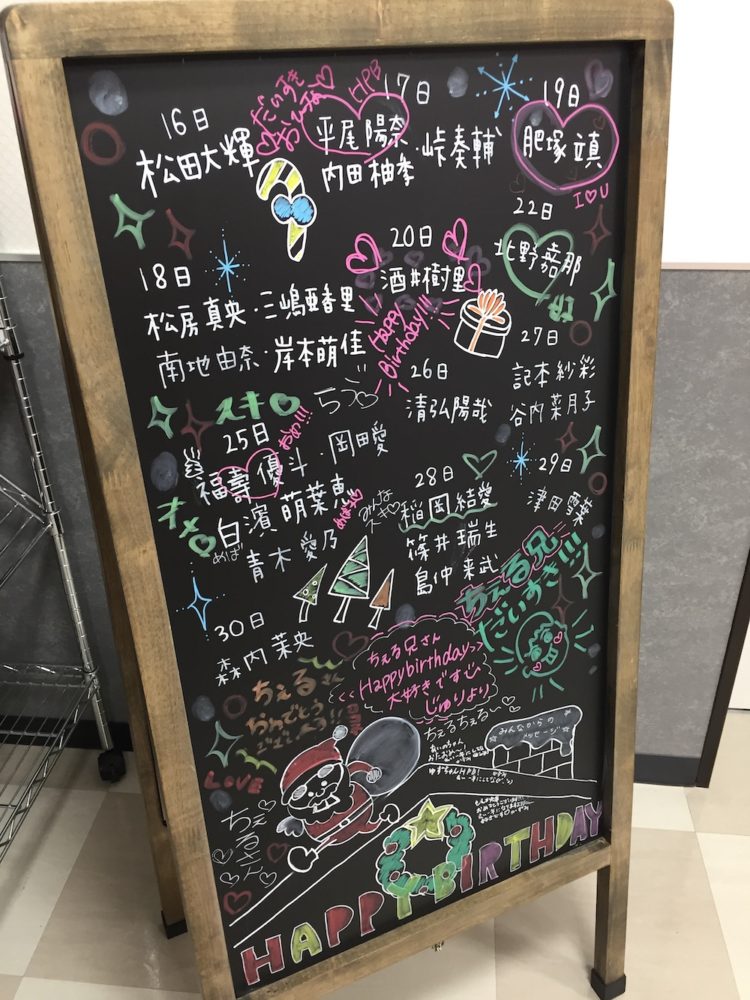 16日
松田大輝
だいすき
HPB
17日
平尾陽奈・峠奏輔
内田柚孝
19日
肥塚 竣真
I♡U
18日
松房真央・三嶋亜香里
南地由奈・岸本萌佳
20日
酒井樹里
Happy
Birthday!!!
22日
北野嘉那
スキ♡
25日
おめ!!!
福壽優斗・岡田愛
白濱萌葉恵
青木愛乃
めば
みんな
スキ♡
26日
清弘陽哉
27日
記本紗彩
谷内菜月子
28日
稲岡結愛
篠井瑞生
島仲来武
29日
津田雪葉
30日
森内茉央
ちぇる兄
だいすき!!!
ちぇる兄さん
Happybirthday
大好きです
じゅりより
ちぇるさん
おめでとう
ございます!!!
LOVE
ちぇるちぇる〜♡
みんなからの
メッセージ☆
ゆずちゃんHPB!
ちぇるさん
HAPPY BIRTHDAY